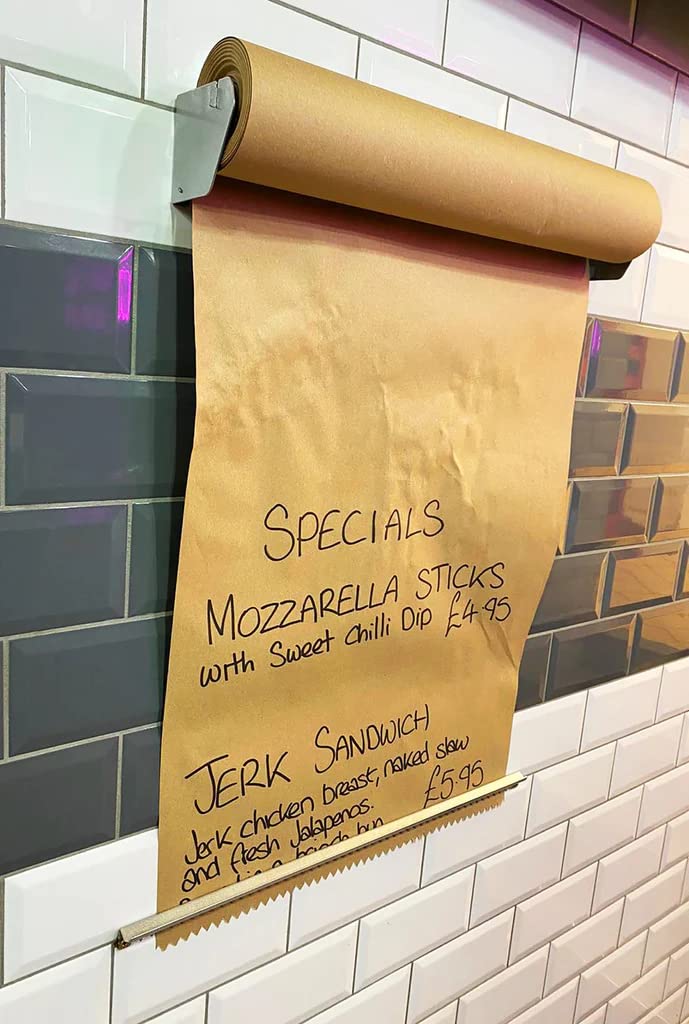 SPECIALS
MOZZARELLA STICKS
with Sweet Chilli Dip £4.95
JERK SANDWICH
Jerk chicken breast, naked slaw
and fresh Jalapenos. £5.95
bun